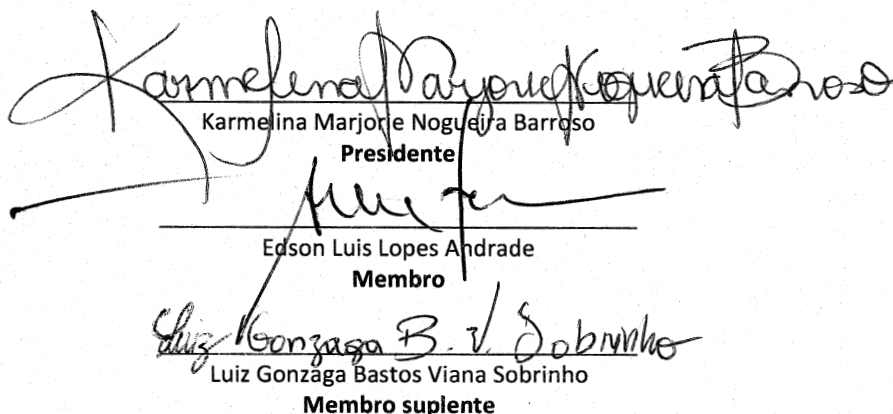 Karmelina Marjorie Nogueira Barroso
Karmelina Marjorie Nogueira Barroso
Presidente
Edson Luis Lopes Andrade
Membro
Luiz Gonzaga B. V. Sobrinho
Luiz Gonzaga Bastos Viana Sobrinho
Membro suplente